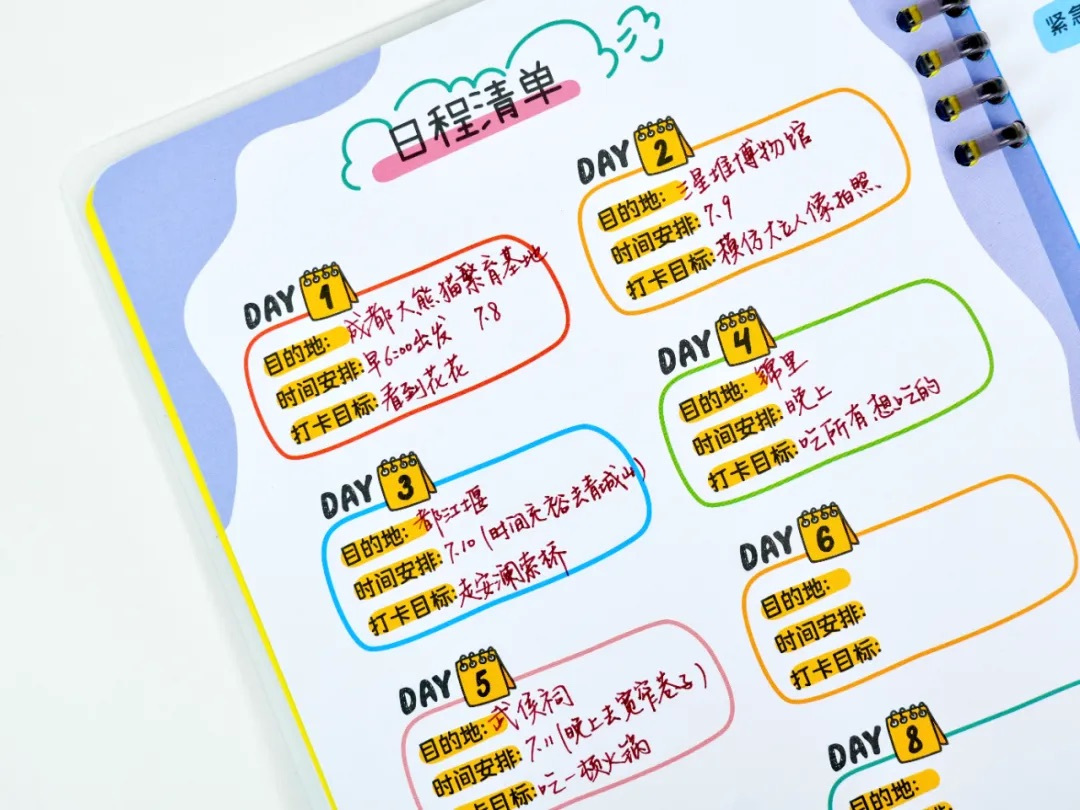 日程清单
紧急
DAY 1
目的地: 成都大熊猫繁育基地
时间安排: 早6:00出发 7.8
打卡目标: 看到花花
DAY 2
目的地: 三星堆博物馆
时间安排: 7.9
打卡目标: 模仿大立人像拍照
DAY 3
目的地: 都江堰
时间安排: 7.10(时间充裕去青城山)
打卡目标: 走安澜索桥
DAY 4
目的地: 锦里
时间安排: 晚上
打卡目标: 吃所有想吃的
DAY 5
目的地: 武侯祠
时间安排: 7.11(晚上去宽窄巷子)
打卡目标: 吃一顿火锅
DAY 6
目的地:
时间安排:
打卡目标:
DAY 8
目的地: